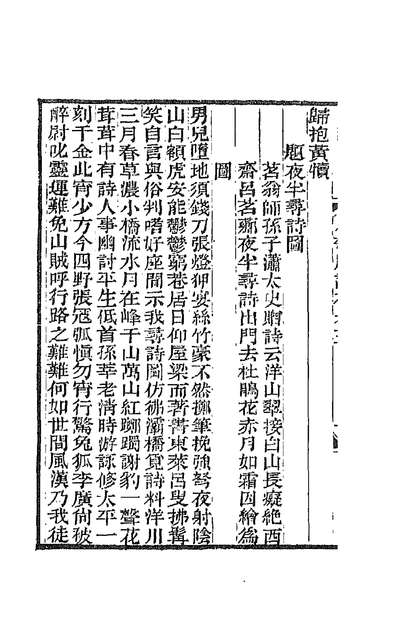 歸抱黃犢
題夜半尋詩圖
茗翁師孫子瀟太史贈詩云洋山翠接白山長癡絶酉
齋呂茗齋夜半尋詩出門去杜鵑花赤月如霜因繪爲
圖
男兒墮地須錢刀張燈狎宴絲竹豪不然擲筆挽強弩夜射陰
山白額虎安能鬱鬱窮巷居日仰屋梁而著書東萊呂叟拂髯
笑自言與俗判嗜好座間示我尋詩圖仿彿灞橋覓詩料洋川
三月春草濃小橋流水月在峰千山萬山紅躑躅謝豹一聲花
茸茸中有詩人事幽討平生低首孫華老清時游詠修太平一
刻千金此宵少方今四野張弧愼勿宵行驚兔狐李廣尙被
醉尉叱靈運難免山賊呼行路之難難何如世間風漢乃我徒